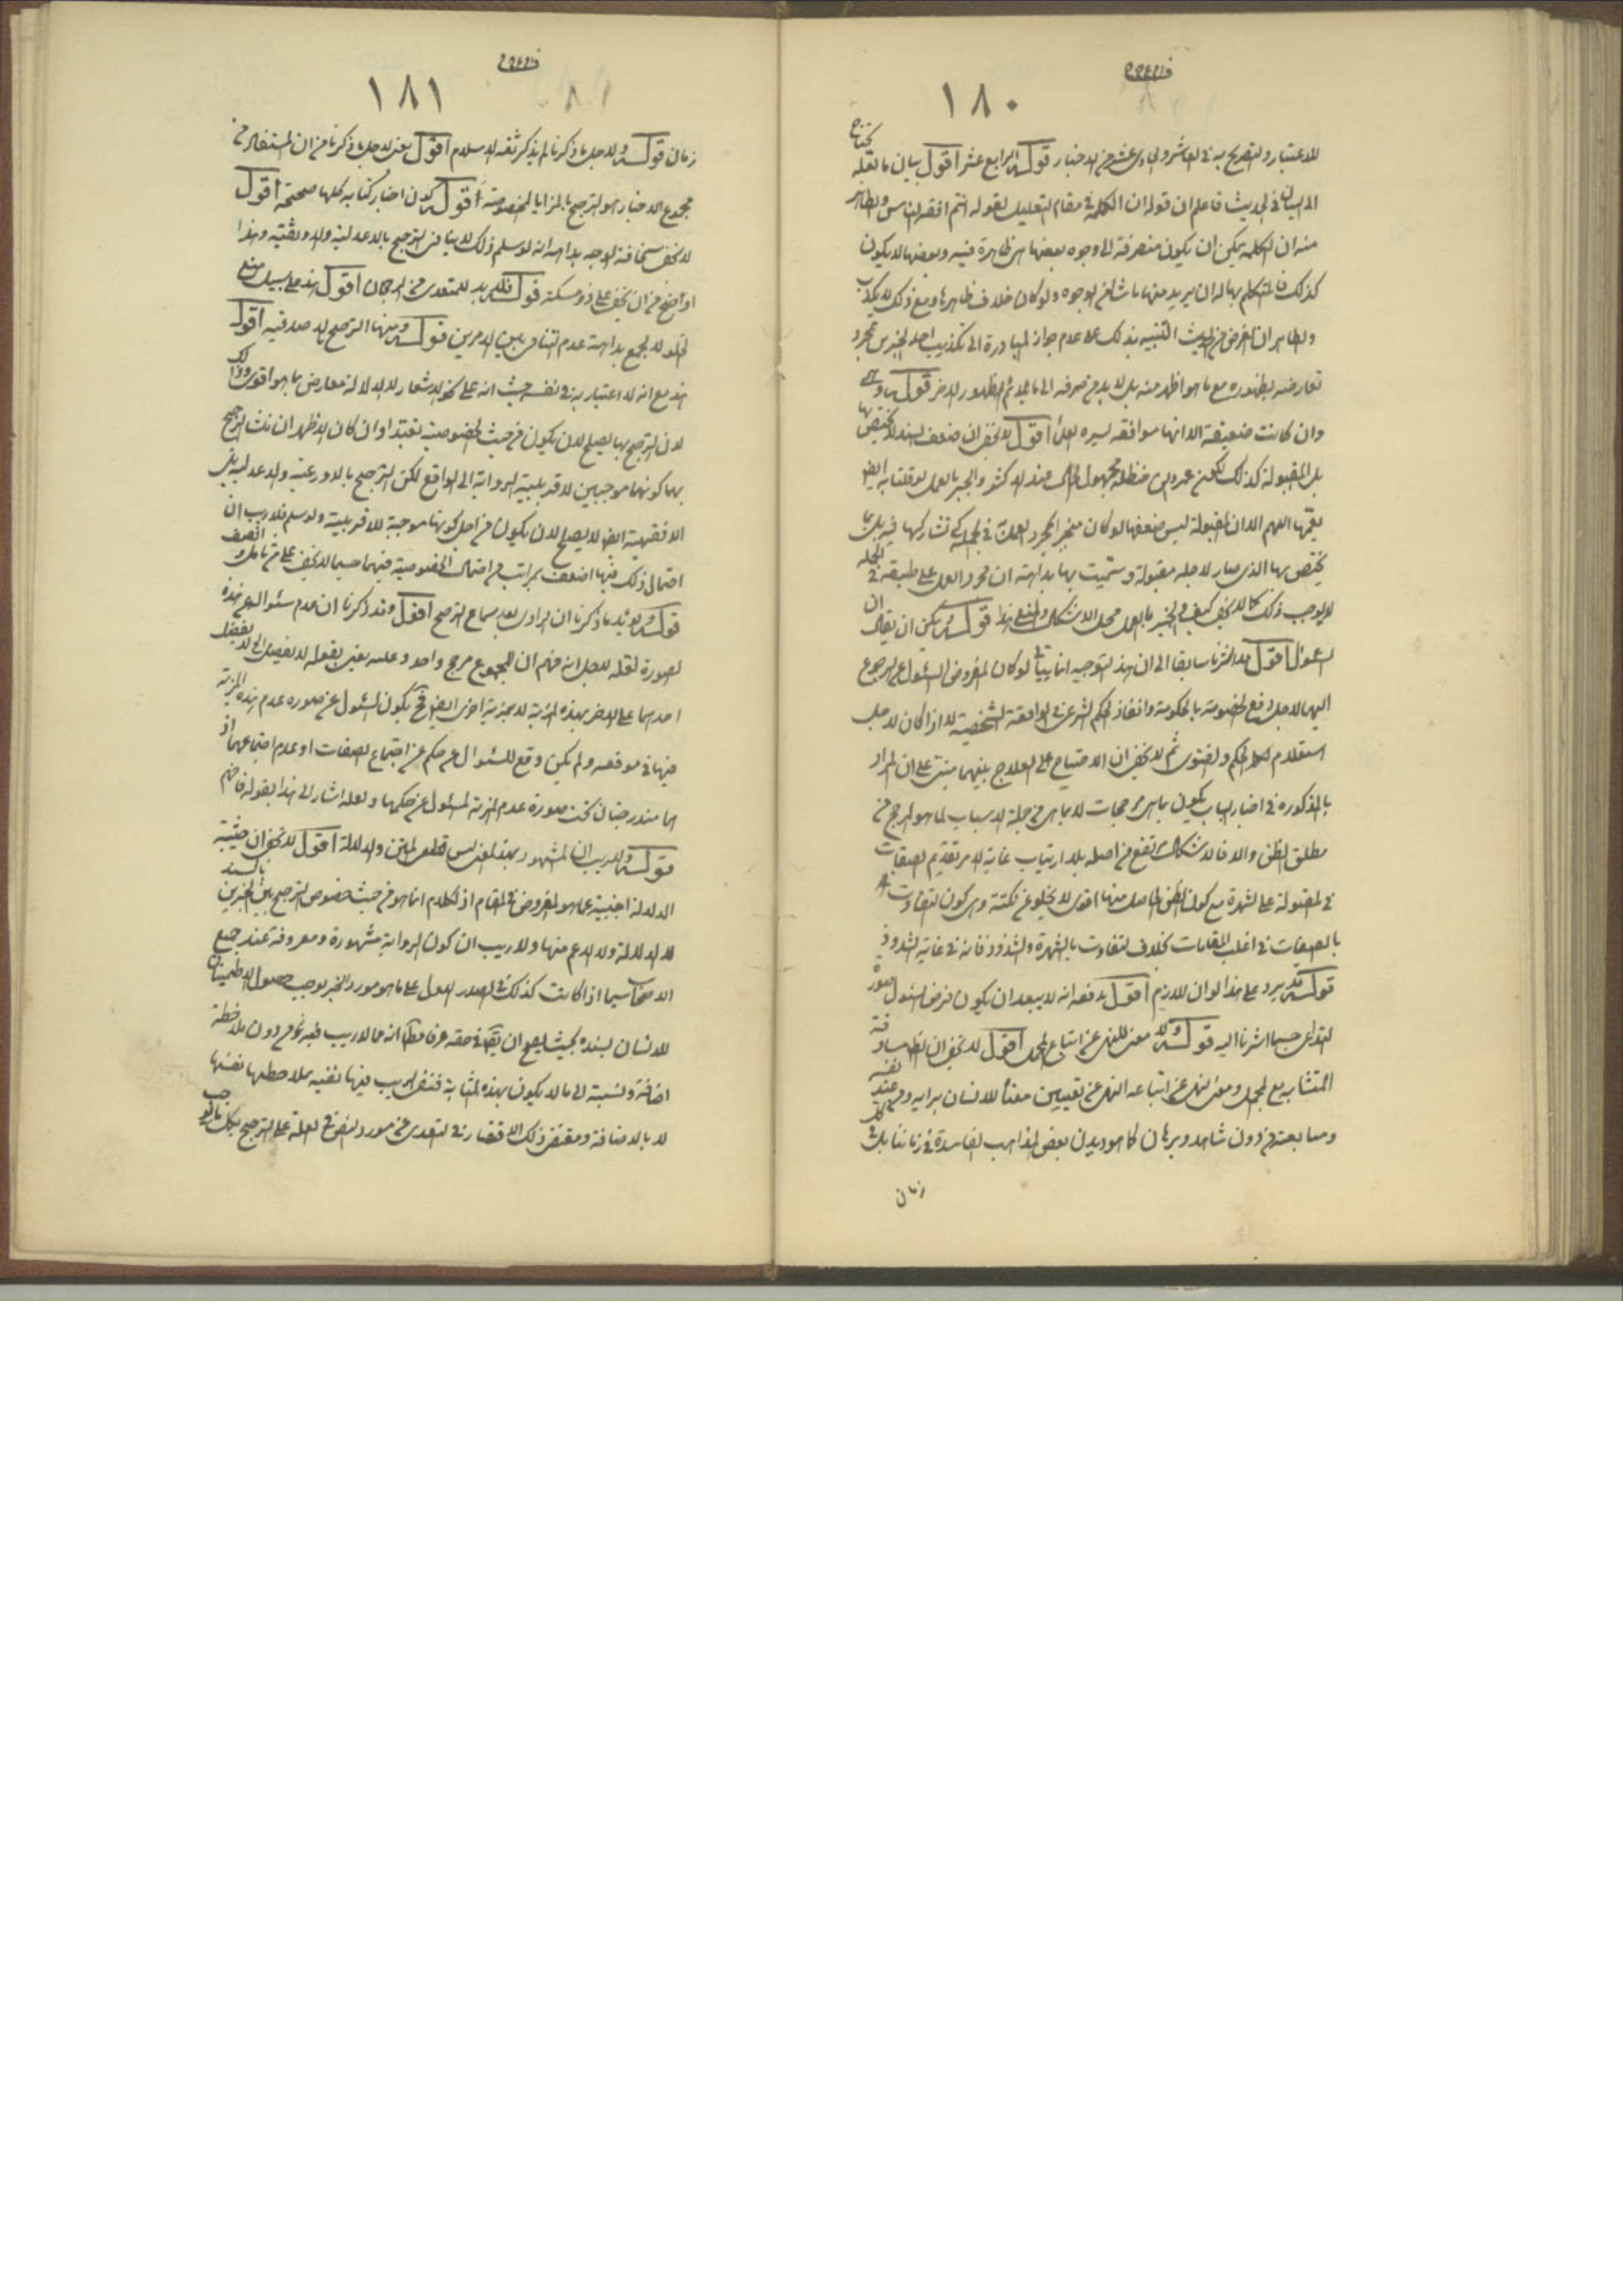 ١٨٠
للاعتبار والتصريح به في العاشر والحادي عشر من الاخبار قوله الرابع عشر اقول بيان ما نقله يحتاج
الى البيان في الحديث فاعلم ان قوله ان الكلمة في مقام التعليل لقوله انتم افقه الناس والظاهر
منه ان الكلمة يمكن ان يكون منصرفة الى وجوه بعضها هى ظاهرة فيه وبعضها لا يكون
كذلك فالمتكلم بها له ان يريد منها ما شاء من الوجوه ولو كان خلاف ظاهرها ومع ذلك لا يكذب
والظاهر ان الغرض من الحديث التنبيه بذلك على عدم جواز المبادرة الى تكذيب احد الخبرين بمجرد
تعارضه بظهوره مع ما هو اظهر منه بل لا بد من صرفه الى ما يلائم الظهور الاخر قوله
وان كانت ضعيفة الا انها موافقه لسيرة العلماء اقول لا يخفى ان ضعف السند لا يختص بها
بل المقبولة كذلك لكون عمر بن حنظلة مجهول الحال عند الاكثر والجبر بالعمل لو قلنا به ايضا
يعمها اللهم الا ان المقبولة ليس ضعفها لو كان منجبرا بمجرد العمل في الجملة كى تشاركها فيه بل بما
يختص بها الذى صار لاجله مقبولة وسميت بها بداهة ان مجرد العمل على طبقه في الجملة
لا يوجب ذلك كما لا يخفى كيف والجبر بالعمل محل الاشكال والمنع هذا قوله ويمكن ان يقال ان
السؤال اقول قد اشرنا سابقا الى ان هذا التوجيه انما يتأتى لو كان المفروض السئوال عن الرجوع
اليهما لاجل رفع الخصومة بالحكومة وانفاذ الحكم الشرعى في الواقعة الشخصية لا اذا كان لاجل
استعلام الحكم والفتوى ثم لا يخفى ان الاحتياج الى العلاج بينهما مبنى على ان المراد
بالمذكورة في اخبار الباب يكون بما هى مرجحات لا بما هى من جملة الاسباب لما هو المرجح من
مطلق الظن والا فالاشكال يرتفع من اصله بلا ارتياب غاية الامر تقديم الصفات
في المقبولة على الشهرة مع كون الظن الحاصل منها اقوى لا يخلو عن نكتة وهى كون التفاوت
بالصفات في اغلب المقامات بخلاف التفاوت بالشهرة والشذوذ فانه في غاية الشذوذ
قوله قد يرد على هذا لو ان اللازم اقول يدفعه انه لا يبعد ان يكون فرض السئول صورة
التداعى حسبما اشرنا اليه قوله ولا معنى للنهى عن اتباع المجمل اقول لا يخفى ان الظهر مساوقة
المتشابه مع المجمل ومعنى النهى عن اتباعه النهى عن تعيين معناه للانسان برايه ومن عند نفسه
ومتابعته من دون شاهد وبرهان كما هو ديدن بعض المذاهب الفاسدة في زماننا بل في كل
زمان
١٨١
زمان قوله ولاجل ما ذكرنا لم يذكر ثقة الاسلام اقول يعنى لاجل ما ذكرنا من ان المستفاد من
مجموع الاخبار هو الترجيح بالمزايا المخصوصة قوله لان اخبار كتابه كلها صحيحة اقول
لا يخفى سخافة الوجه بداهة انه لو سلم ذلك لا ينافى الترجيح بالاعدلية والاوثقية وهذا
اوضح من ان يخفى على ذى مسكة قوله فلا بد للمتعدى من الرجحان اقول هذا على سبيل منع
الخلو لا الجمع بداهة عدم التنافى بين الامرين قوله ومنها الترجيح بالاصدقية اقول
هذا مع انه لا اعتبار به في نفسه حيث انه على نحو الاشعار لا الدلالة معارض بما هو اقوى وذلك
لان الترجيح بها يصلح لان يكون من حيث الخصوصية تعبدا وان كان الاظهر ان الترجيح
بهما كونهما موجبين لاقربية الرواية الى الواقع لكن الترجيح بالاورعية والاعدلية بل
الافقهية ايضا لا يصلح لان يكون من اجل كونها موجبة للاقربية ولو سلم فلا ريب ان
احتمال ذلك فيها اضعف بمراتب من احتمال الخصوصية فيهما حسبما لا يخفى على من تامل وانصف
قوله ويؤيد ما ذكرنا ان الراوى بعد سماع الترجيح اقول وقد ذكرنا ان عدم سئواله عن هذه
الصورة لعله لاجل انه فهم ان المجموع مرجح واحد وعليه يعنى بقوله لا يفضل الى لا يفضل
احدهما على الاخر بهذه المزية لا بمزية اخرى ايضا فح يكون السئول عن صورة عدم هذه المزية
فيها في موقعه ولم يكن وقع للسئوال عن حكم عن اجتماع الصفات او عدم اجتماعها اذ
هما مندرجتان تحت صورة عدم المزية المسئول عن حكمها ولعله اشار الى هذا بقوله فافهم
قوله ولا ريب ان المشهور بهذا المعنى ليس قطعى المتن والدلالة اقول لا يخفى ان حيثية
الدلالة اجنبية عما هو المفروض في المقام اذ الكلام انما هو من حيث خصوص الترجيح بين الخبرين بالسند
لا الدلالة ولا الاعم منها ولا ريب ان كون الرواية مشهورة ومعروفة عند جميع
الاصحاب سيما اذا كانت كذلك في الصدر الاول على ما هو مورد الخبر يوجب حصول الاطمينان
للانسان بسنده بحيث يصح ان يقال في حقه عرفا مطلقا انه مما لا ريب فيه من دون ملاحظة
اضافة ونسبة الى ما لا يكون بهذه المثابة فنفى الريب فيها نفيه بملاحظتها نفسها
لا بالاضافة ومقتضى ذلك الاقتصار في التعدى عن مورد النص في العلة على الترجيح بكل ما يوجب